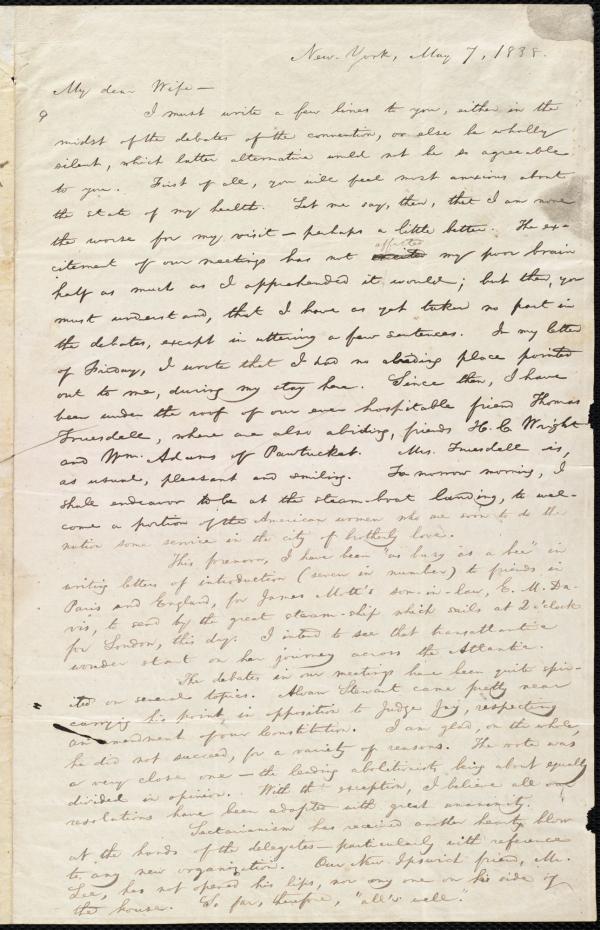 New-York, May 7, 1838.
My dear Wife—
I must write a few lines to you, either in the
midst of the debates of the convention, or else be wholly
silent, which latter alternative would not be so agreeable
to you. First of all, you will feel most anxious about
the state of my health. Let me say, then, that I am none
the worse for my visit—perhaps a little better. The ex-
affected
citement of our meetings has not excited my poor brain
half as much as I apprehended it would; but then, you
must understand, that I have as yet taken no part in
the debates, except in uttering a few sentences. In my letter
of Friday, I wrote that I had no abiding place pointed
out to me, during my stay here. Since then, I have
been under the roof of our ever hospitable friend Thomas
Truesdell, where are also abiding, friends H. C. Wright
and Wm. Adams of Pawtucket. Mrs. Truesdell is,
as usual, pleasant and smiling. To-morrow morning, I
shall endeavor to be at the steam-boat landing, to wel-
come a portion of the American women who are soon to do the
nation some service in the city of brotherly love.
This forenoon, I have been "as busy as a bee" in
writing letters of introduction (seven in number) to friends in
Paris and England, for James Mott's son-in-law, E. M. Da-
vis, to send by the great steam-ship which sails at 2 o'clock
for London, this day. I intend to see that transatlantic
wonder start on her journey across the Atlantic.
The debates in our meetings have been quite spir-
ited on several topics. Alvan Stewart came pretty near
carrying his point, in opposition to Judge Jay, respecting
an amendment of our Constitution. I am glad, on the whole,
he did not succeed, for a variety of reasons. The vote was
a very close one—the leading abolitionists being about equally
divided in opinion. With this exception, I believe all our
resolutions have been adopted with great unanimity.
Sectarianism has received another heavy blow
at the hands of the delegates—particularly with reference
to any new organization. Our New Ipswich friend, Mr.
Lee, has not opened his lips, nor any one on his side of
the house. So far, therefore, "all's well."